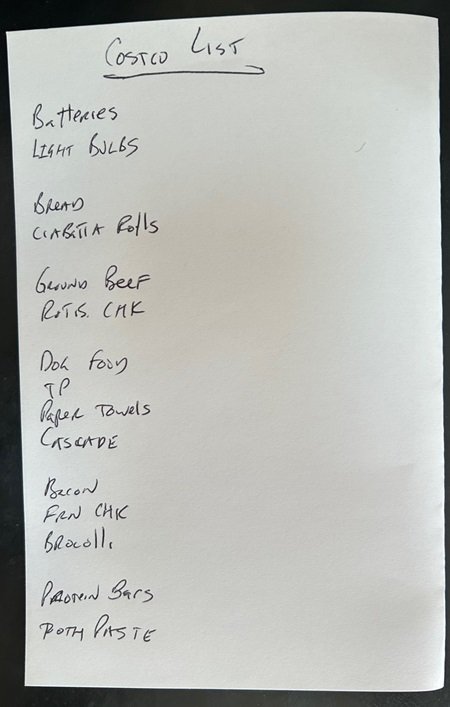 Costco List
Batteries
Light Bulbs
Bread
Ciabitta Rolls
Ground Beef
Rotis. Chk
Dog Food
TP
Paper Towels
Cascade
Bacon
Frn Chk
Brocolli
Protein Bars
Toth Paste